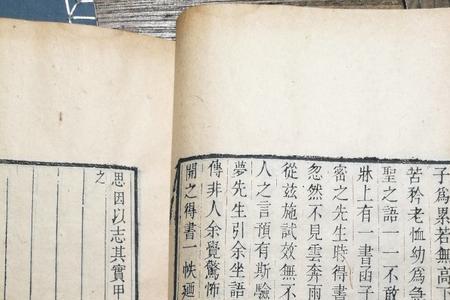 子爲累若無高下
苦矜老恤幼爲急
聖之語一一不敢
牀上有一書函子
密之先生時得書
忽然不見雲奔雨
從玆施試效無不
人之言預有斯驗
夢先生引余坐語
傳非人余覺驚怖
開之得書一帙廼
思因以志其實甲
之